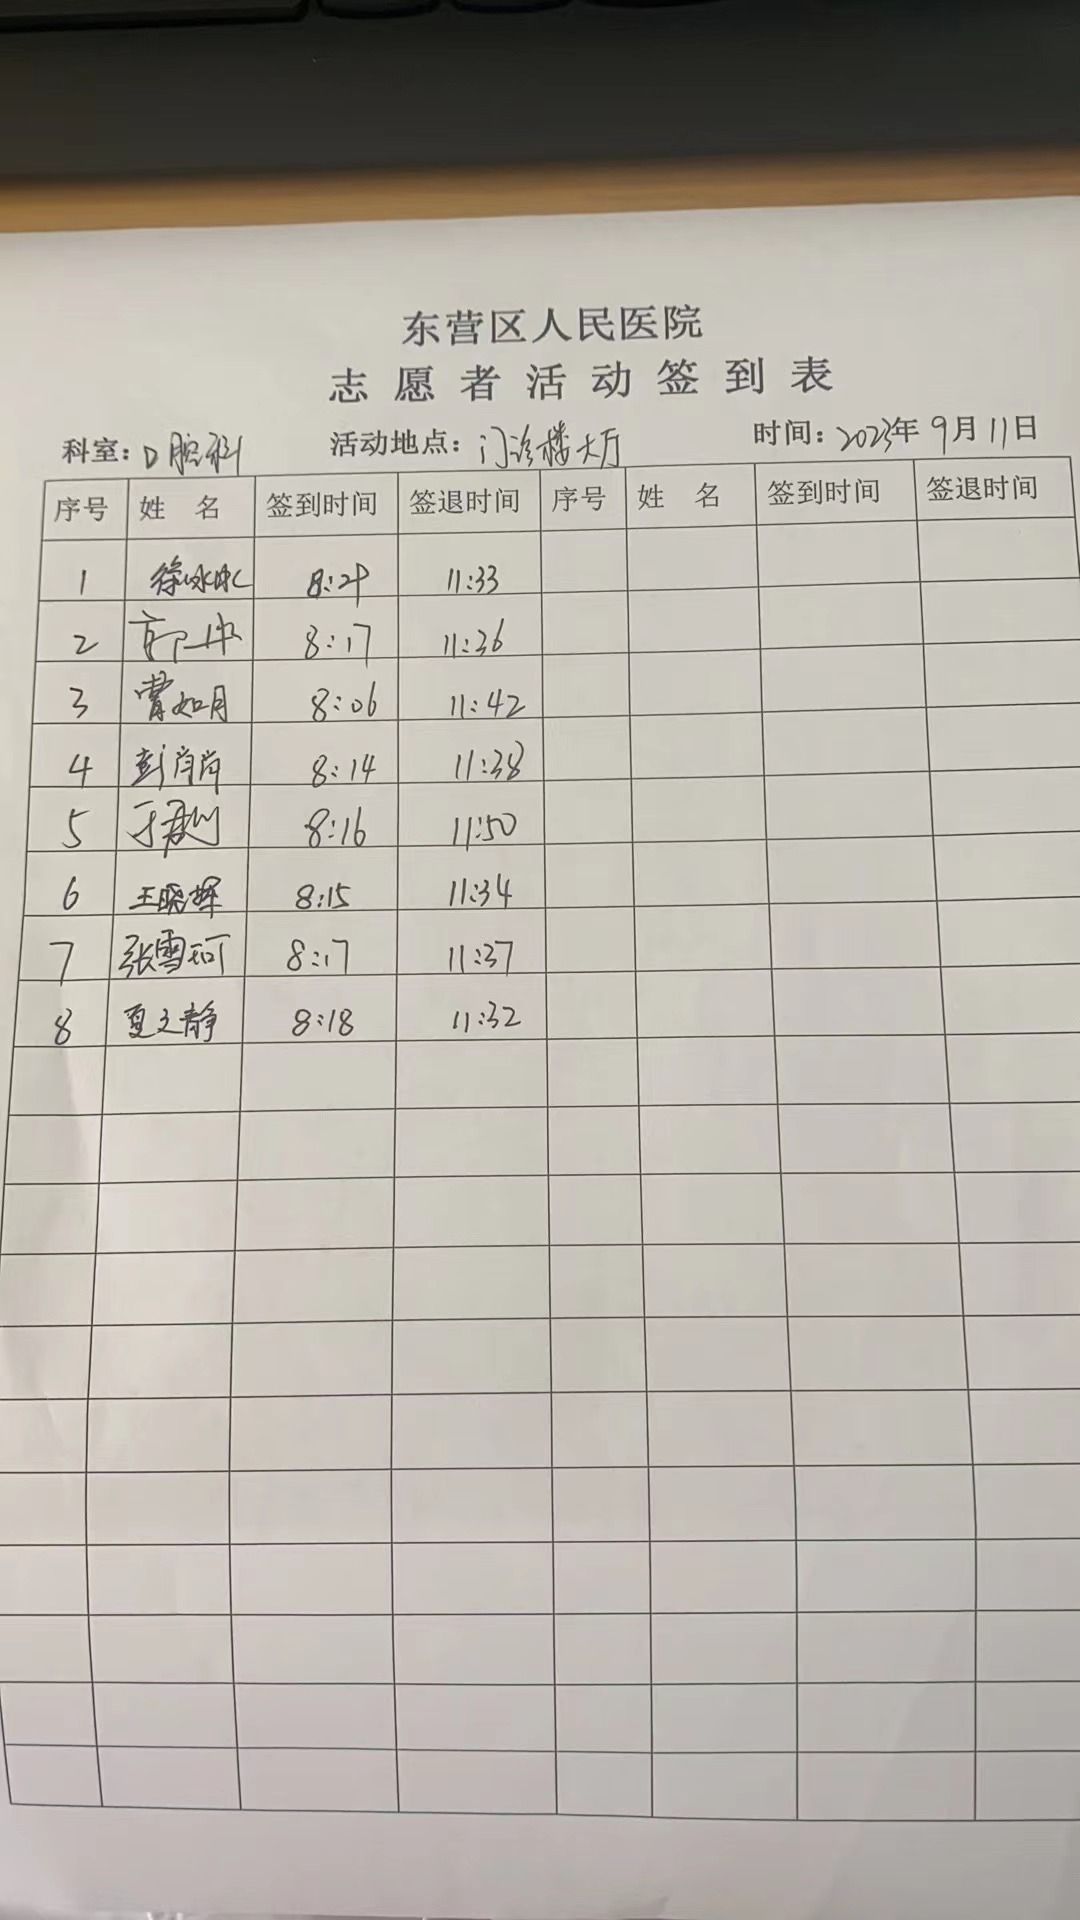 东营区人民医院
志愿者活动签到表
科室：口腔科 活动地点：门诊楼大厅 时间：2023年9月11日
序号 姓名 签到时间 签退时间 序号 姓名 签到时间 签退时间
1 徐冰冰 11:33
2 8:17 11:36
3 曹如月 8:06 11:42
4 彭肖肖 8:14 11:38
5 于 8:16 11:50
6 王晓辉 8:15 11:34
7 张雪珂 8:17 11:37
8 夏文静 8:18 11:32